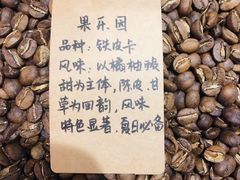 果乐园
品种：铁皮卡
风味：以橘柚酸
甜为主体，陈皮、甘
草为回韵，风味
特色显著，夏日必备